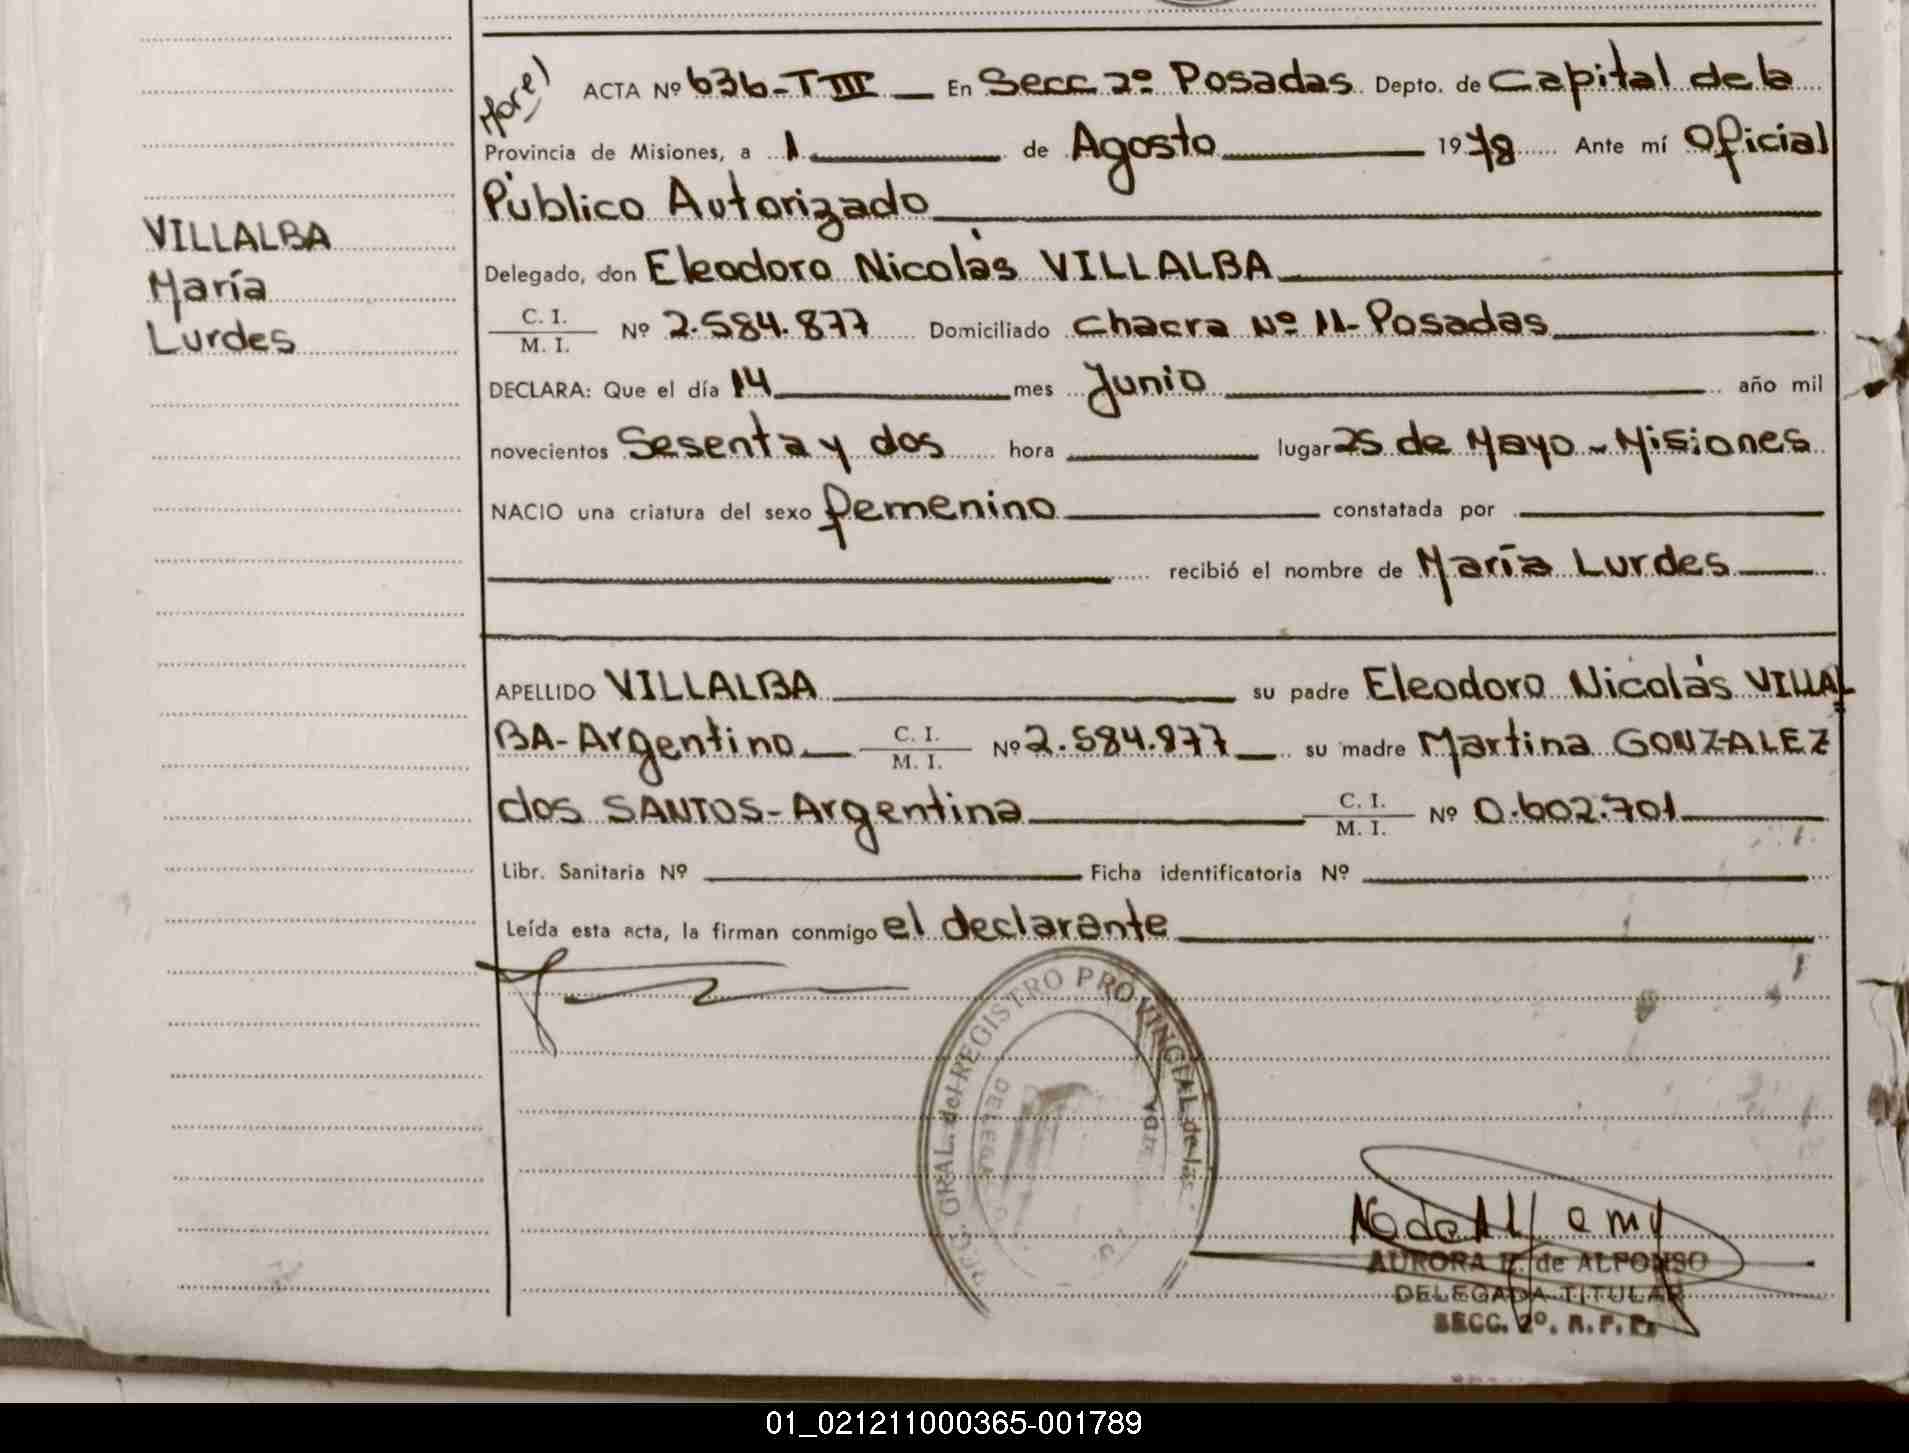 ACTA Nº 636-TIII En Secc 2º Posadas Depto. de Capital de la
Provincia de Misiones, a 1 de Agosto 1978 Ante mí Oficial
Público Autorizado
VILLALBA
María
Lurdes
Delegado, don Eleodoro Nicolás VILLALBA
C. I.
M. I. Nº 2.584.877 Domiciliado Chacra Nº 11-Posadas
DECLARA: Que el día 14 mes Junio año mil
novecientos Sesenta y dos hora lugar 25 de Mayo - Misiones
NACIO una criatura del sexo femenino constatada por
recibió el nombre de María Lurdes
APELLIDO VILLALBA su padre Eleodoro Nicolás VILLAL
BA-Argentino C. I.
M. I. Nº 2.584.877 su madre Martina GONZALEZ
dos SANTOS-Argentina C. I.
M. I. Nº 0.602.701
Libr. Sanitaria Nº Ficha identificatoria Nº
Leída esta acta, la firman conmigo el declarante
GRAL. del REGISTRO PROVINCIAL de las
AURORA de ALFONSO
DELEGADA TITULAR
SECC. 2º. R. P. P.
01_021211000365-001789